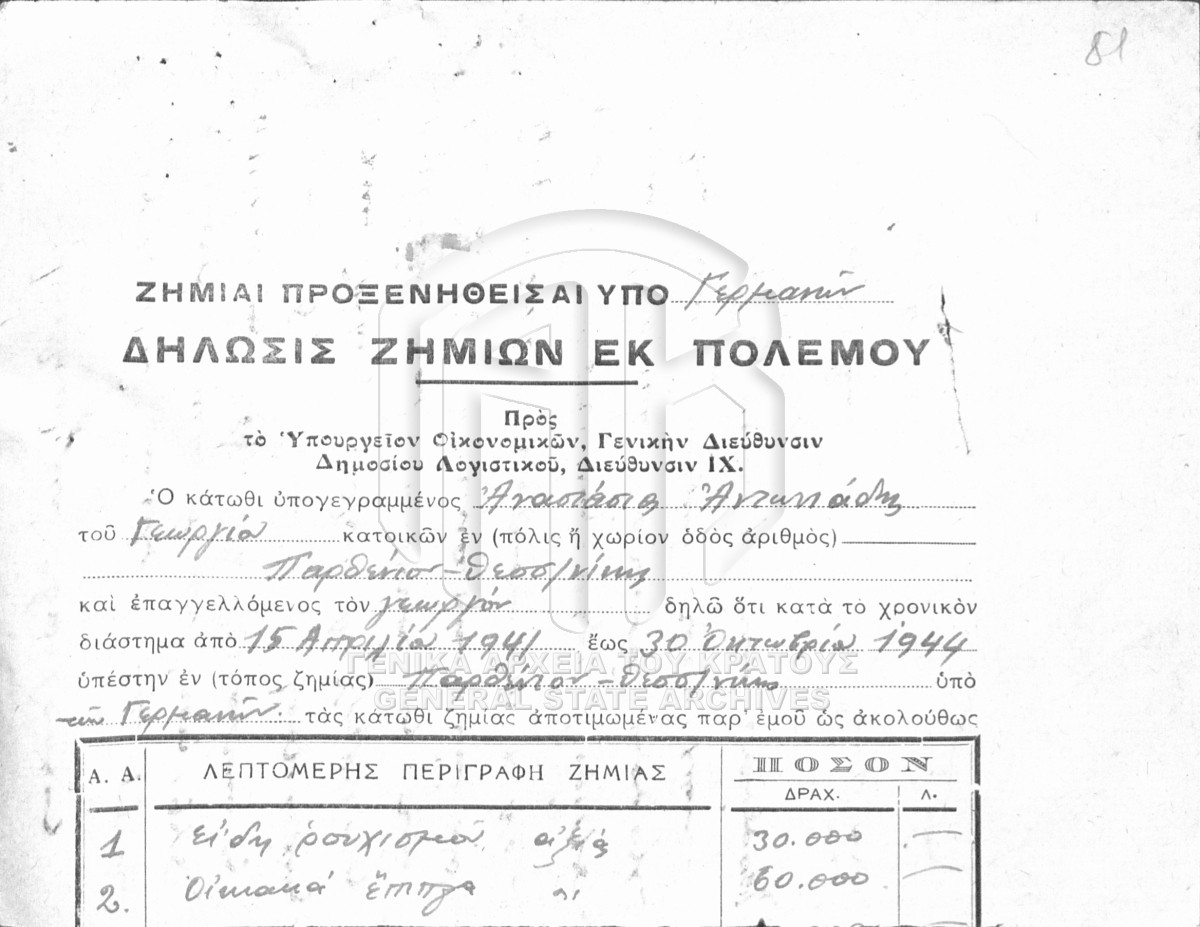 81
ΖΗΜΙΑΙ ΠΡΟΞΕΝΗΘΕΙΣΑΙ ΥΠΟ Γερμανῶν
ΔΗΛΩΣΙΣ ΖΗΜΙΩΝ ΕΚ ΠΟΛΕΜΟΥ
Πρὸς
τὸ Ὑπουργεῖον Οἰκονομικῶν, Γενικὴν Διεύθυνσιν
Δημοσίου Λογιστικοῦ, Διεύθυνσιν IX.
Ὁ κάτωθι ὑπογεγραμμένος Ἀναστάσιος Ἀντωνιάδης
τοῦ Γεωργίου κατοικῶν ἐν (πόλις ἢ χωρίον ὁδὸς ἀριθμὸς)
Παρθένιον - Θεσσ/νίκης
καὶ ἐπαγγελλόμενος τὸν γεωργόν δηλῶ ὅτι κατὰ τὸ χρονικὸν
διάστημα ἀπὸ 15 Απριλίου 1941 ἕως 30 Ὀκτωβρίου 1944
ΓΕΝΙΚΑ ΑΡΧΕΙΑ ΤΟΥ ΚΡΑΤΟΥΣ
ὑπέστην ἐν (τόπος ζημίας) Παρθένιον - Θεσσ/νίκης ὑπὸ
GENERAL STATE ARCHIVES
τῶν Γερμανῶν: τὰς κάτωθι ζημίας ἀποτιμωμένας παρ' ἐμοῦ ὡς ἀκολούθως
Α. Α. ΛΕΠΤΟΜΕΡΗΣ ΠΕΡΙΓΡΑΦΗ ΖΗΜΙΑΣ ΠΟΣΟΝ
ΔΡΑΧ. Λ.
1 εἴδη ρουχισμοῦ ἀξίας 30.000 —
2. Οἰκιακά ἔπιπλα 〃 60.000 —